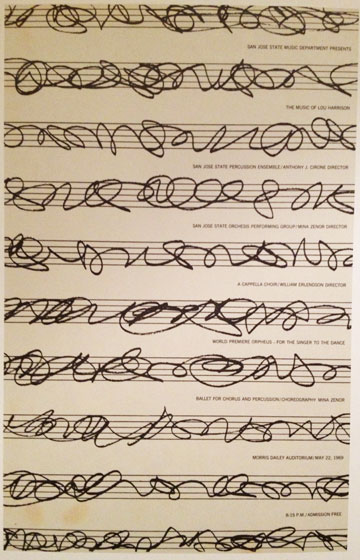 SAN JOSE STATE MUSIC DEPARTMENT PRESENTS
THE MUSIC OF LOU HARRISON
SAN JOSE STATE PERCUSSION ENSEMBLE/ANTHONY J. CIRONE DIRECTOR
SAN JOSE STATE ORCHESIS PERFORMING GROUP/MINA ZENOR DIRECTOR
A CAPPELLA CHOIR/WILLIAM ERLENDSON DIRECTOR
WORLD PREMIERE ORPHEUS - FOR THE SINGER TO THE DANCE
BALLET FOR CHORUS AND PERCUSSION/CHOREOGRAPHY MINA ZENOR
MORRIS DAILEY AUDITORIUM/MAY 22, 1969
8:15 P.M./ADMISSION FREE